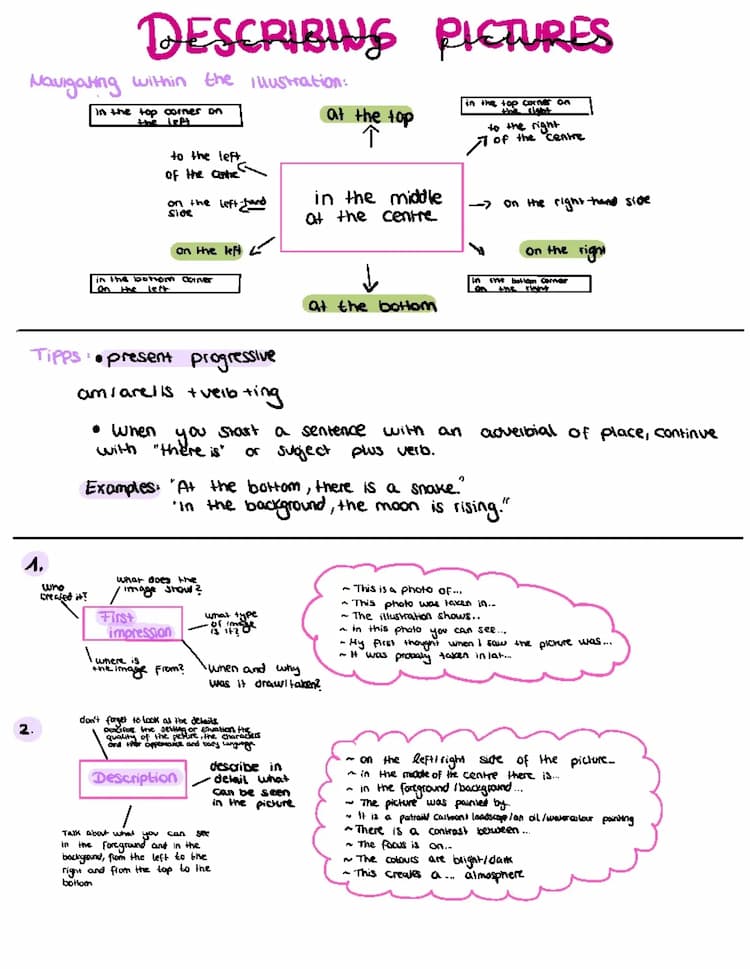 DESCRIBING PICTURES
describing pictures
Navigating within the illustration:
in the top corner on
the left
at the top
in the top corner on
the right
to the left
of the centre
to the right
of the centre
in the middle
at the centre
on the left-hand
side
on the right-hand side
on the left
on the right
in the bottom corner
on the left
at the bottom
in the bottom corner
on the right
Tipps: • present progressive
am/are/is + verb + ing
• When you start a sentence with an adverbial of place, continue
with "there is" or subject plus verb.
Examples: "At the bottom, there is a snake."
"In the background, the moon is rising."
1.
who
created it?
what does the
image show?
First
impression
what type
of image
is it?
where is
the image from?
when and why
was it draw/taken?
~ This is a photo of...
~ This photo was taken in...
~ The illustration shows...
~ In this photo you can see...
~ My first thought when I saw the picture was...
~ It was probably taken in/at...
2.
don't forget to look at the details
describe the setting or situation, the
quality of the picture, the characters
and their appearance and body language
Description
describe in
detail what
can be seen
in the picture
Talk about what you can see
in the foreground and in the
background, from the left to the
right and from the top to the
bottom
~ on the left/right side of the picture...
~ in the middle of the centre there is...
~ in the foreground/background...
~ The picture was painted by...
~ It is a patrait/ landscape/an oil/watercolour painting
~ There is a contrast between...
~ The focus is on...
~ The colours are bright/dark
~ This creates a... atmosphere